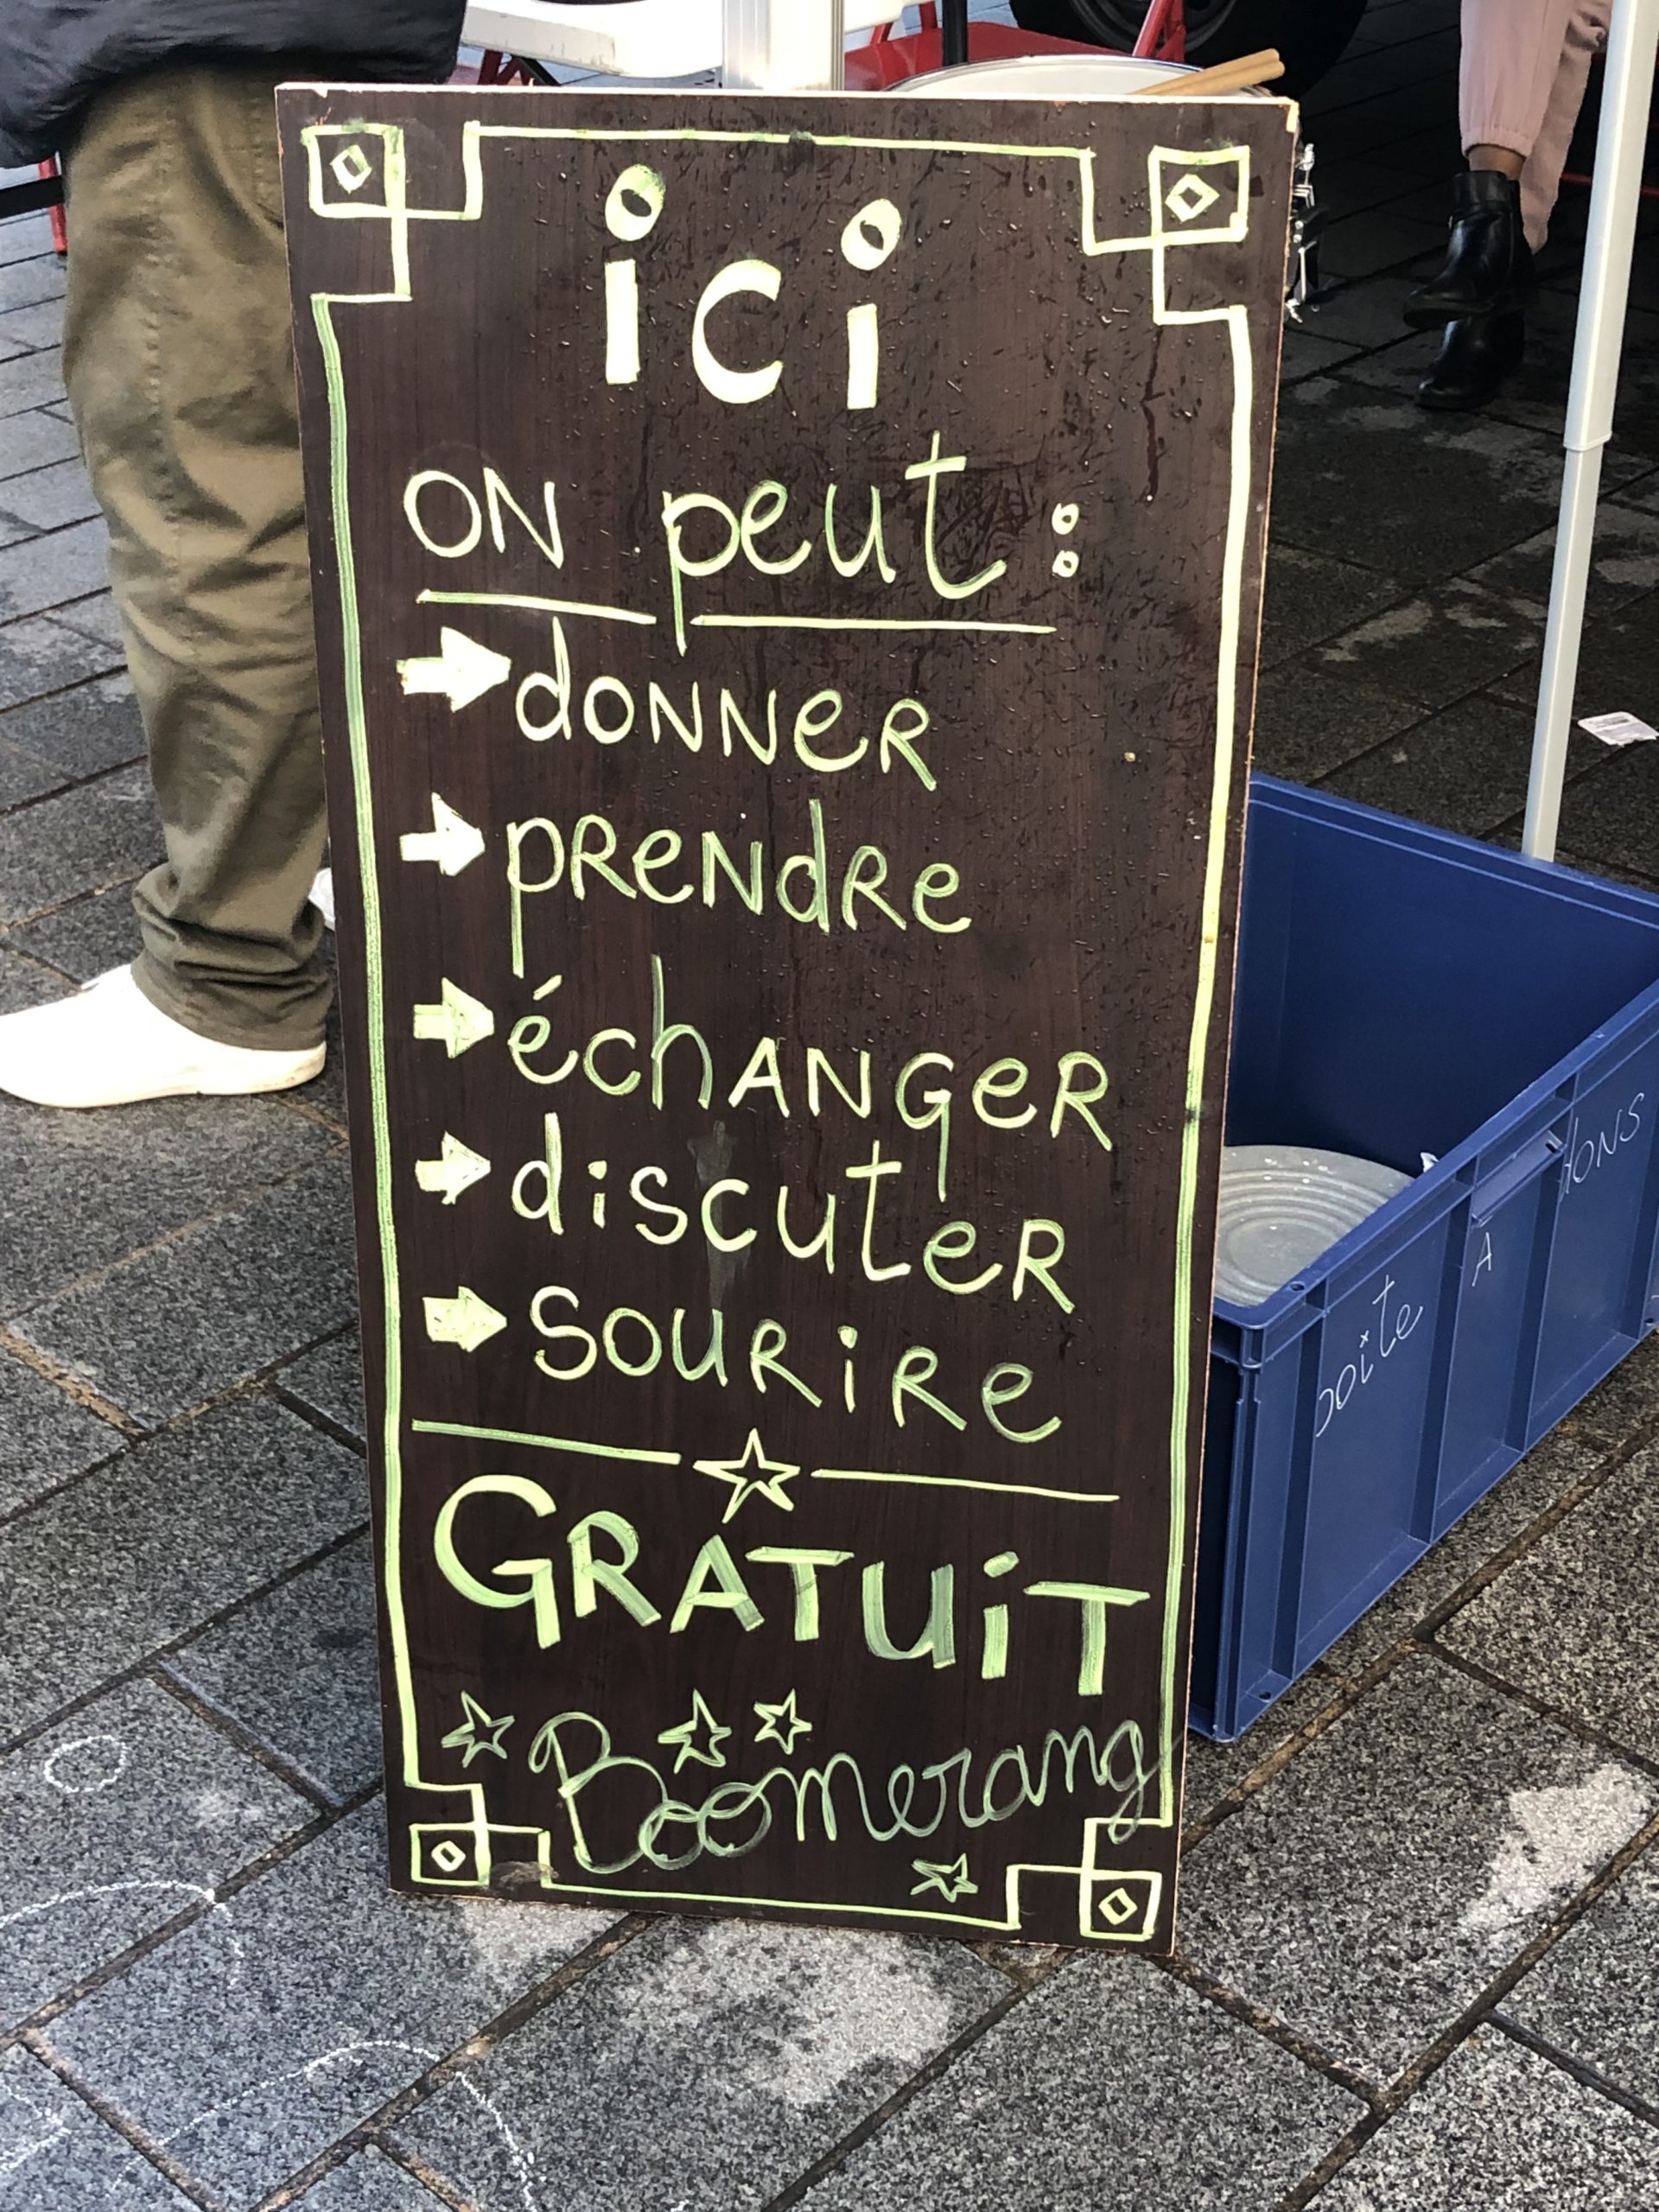 ici
ON peut :
donner
prendre
échanger
discuter
sourire
GRATUIT
Boomerang
boite
A
dons